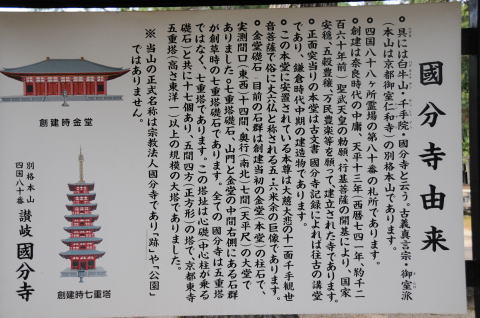 國分寺由来
・具には白牛山・千手院・國分寺と云う。古義真言宗・御室派
(本山は京都御室仁和寺)の別格本山であります。
・四国八十八ヶ所霊場の第八十番の札所であります。
・創建は奈良時代の中庸、天平十三年(西暦七四一年、約千二
百六十年前)聖武天皇の勅願、行基菩薩の開基により、国家
安穏・五穀豊穣・万民豊楽等を願って建立された寺であります。
・正面突当りの本堂は古文書、國分寺記録によれば往古の講堂
であり、鎌倉時代中期の建造物であります。
・この本堂に安置されている本尊は大慈大悲の十一面千手観世
音菩薩で俗に丈六仏と称される五・六米余の巨像であります。
・金堂礎石 目前の石群は創建当初の金堂(本堂)の柱石で、
実測間口(東西)十四間、奥行(南北)七間(天平尺)の大堂で
ありました。・七重塔礎石、山門と金堂の中間右側にある石群
が創草時の七重塔礎石であります。全ての國分寺は五重塔
ではなく、七重塔であります。この塔址は心礎(中心柱が乗る
礎石)と共に十七個あり、五間四方(正方形)の塔で、京都東寺
五重塔(高さ東洋一)以上の規模の大塔でありました。
※当山の正式名称は宗教法人國分寺であり「跡」や「公園」
ではありません。
創建時金堂
創建時七重塔
別格本山
四国八十番
讃岐國分寺